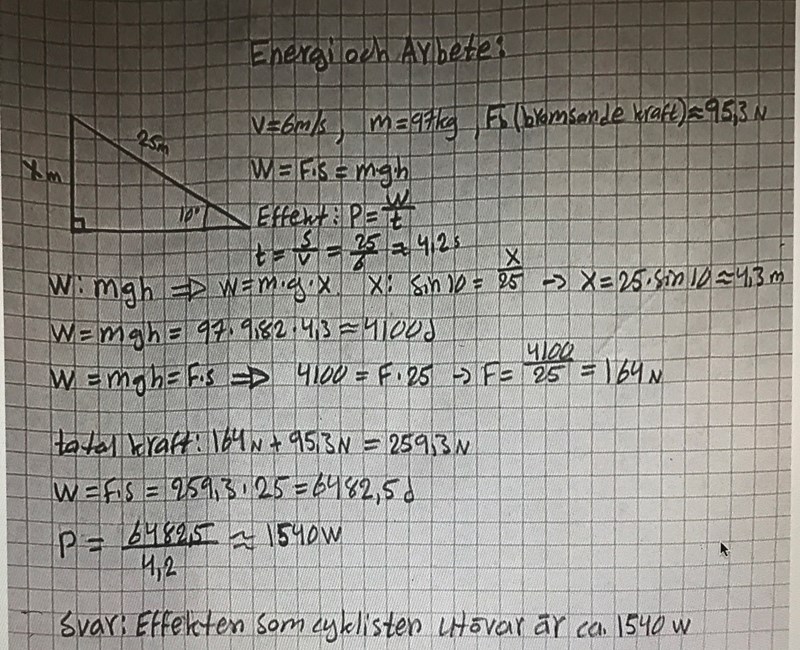 Energi och Arbete:
V=6m/s, m=97kg, Fs (bromsande kraft)≈95,3N
25m
Xm
W=F·s=m·g·h
10°
Effekt: P=W/t
t=s/v=25/6≈4,2s
W: mgh ⇒ W=m·g·x. X: sin10=X/25 → X=25·sin10≈4,3m
W=mgh=97·9,82·4,3≈4100J
W=mgh=F·s ⇒ 4100=F·25 → F=4100/25=164N
total kraft: 164N+95,3N=259,3N
W=F·s=259,3·25=6482,5J
P=6482,5/4,2≈1540W
Svar: Effekten som cyklisten utövar är ca. 1540 W